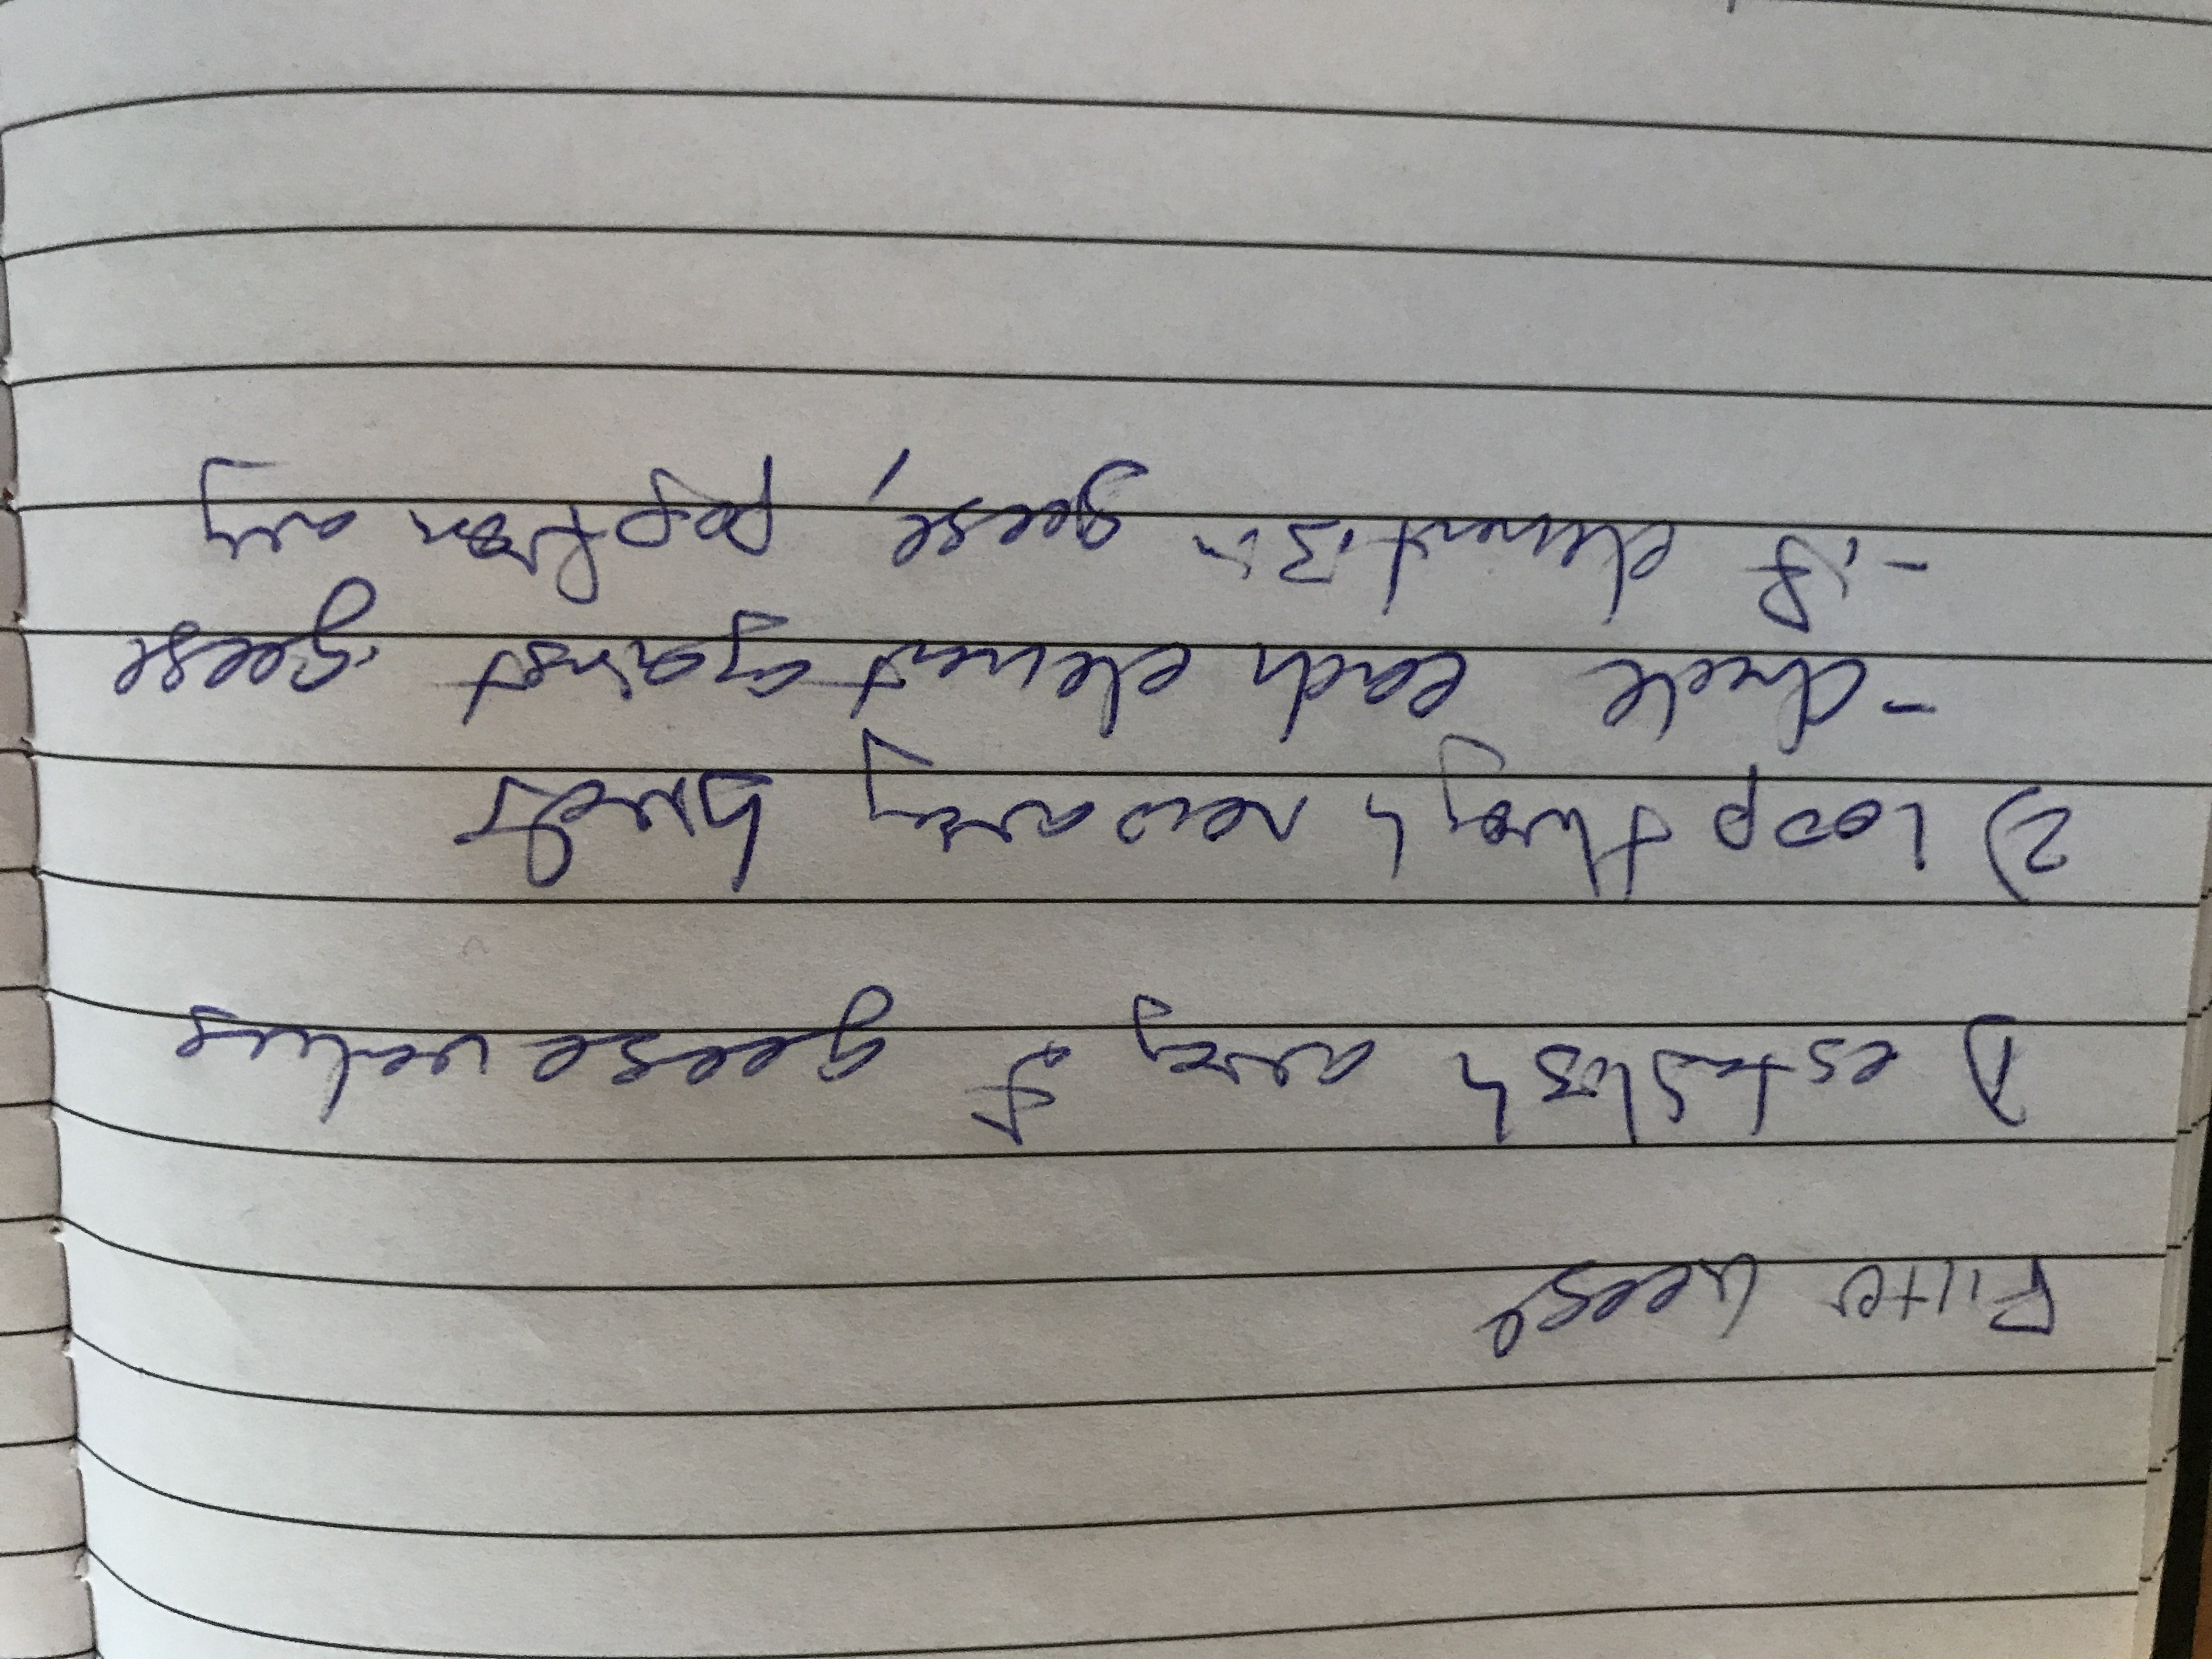 Filter Geese
1) establish array of geese values
2) Loop through new array birds
- check each element against geese
- if element is in geese, pop from array